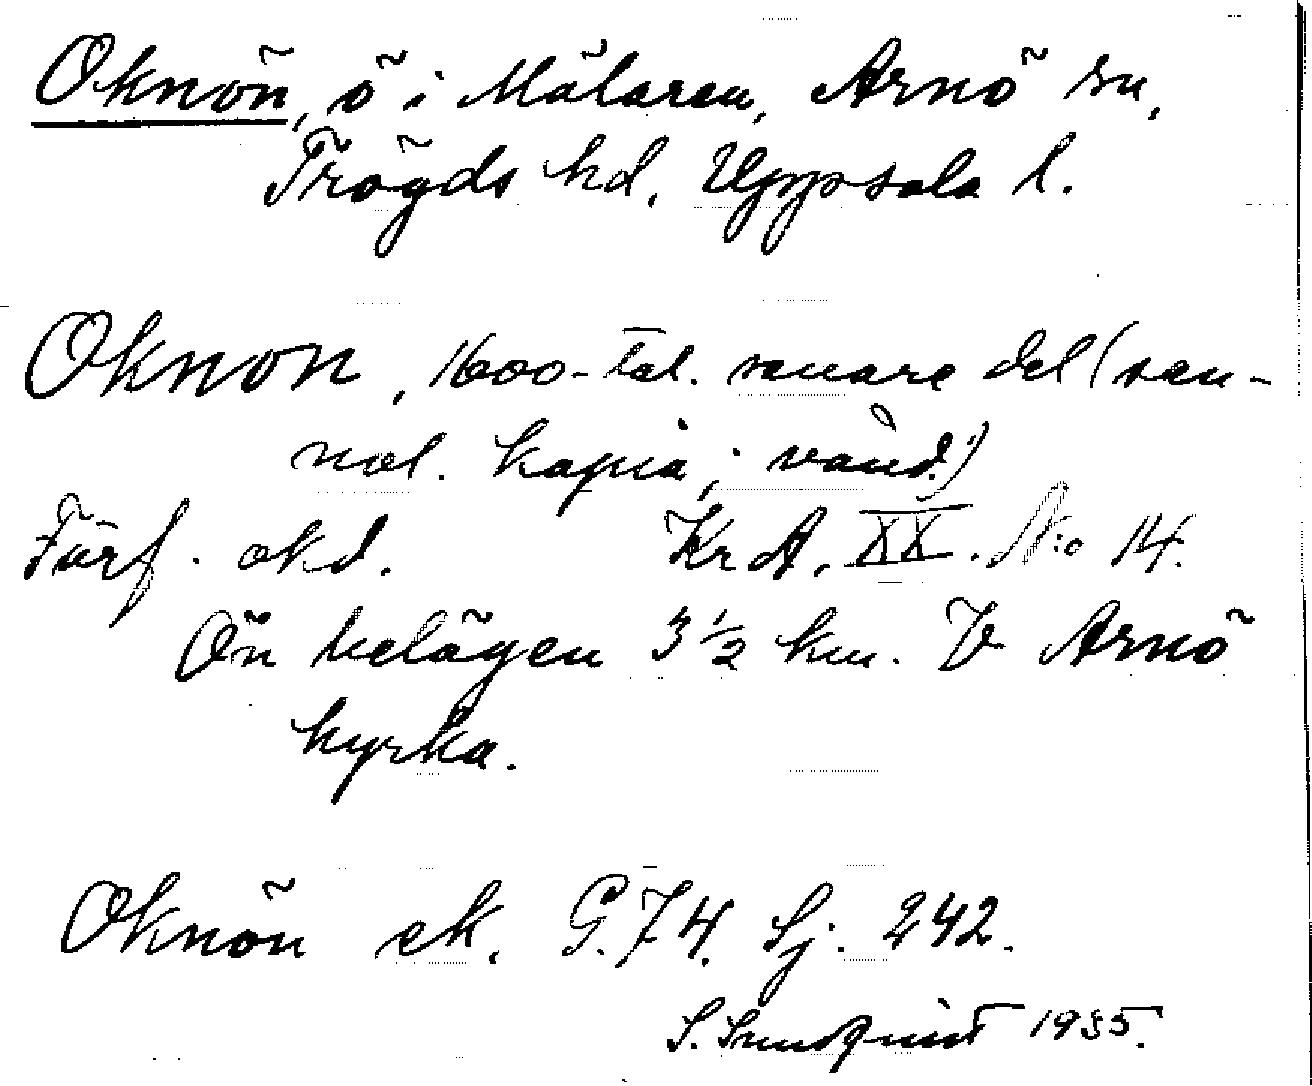 Oknön, ö i Mälaren, Arnö sn,
Trögds hd, Uppsala l.
Oknon, 1600-tal. senare del (san-
nol. kopia; vänd!)
Förf. okd. KrA. XX. No 14.
Ön belägen 3 1/2 km. V Arnö
kyrka.
Oknön ek. G.74. Sj. 242.
S. Sundquist 1935.